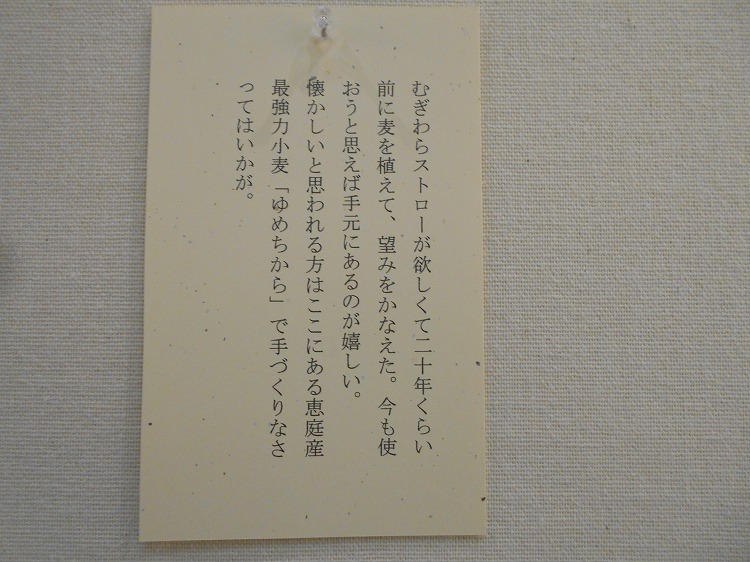 むぎわらストローが欲しくて二十年くらい
前に麦を植えて、望みをかなえた。今も使
おうと思えば手元にあるのが嬉しい。
懐かしいと思われる方はここにある恵庭産
最強力小麦「ゆめちから」で手づくりなさ
ってはいかが。